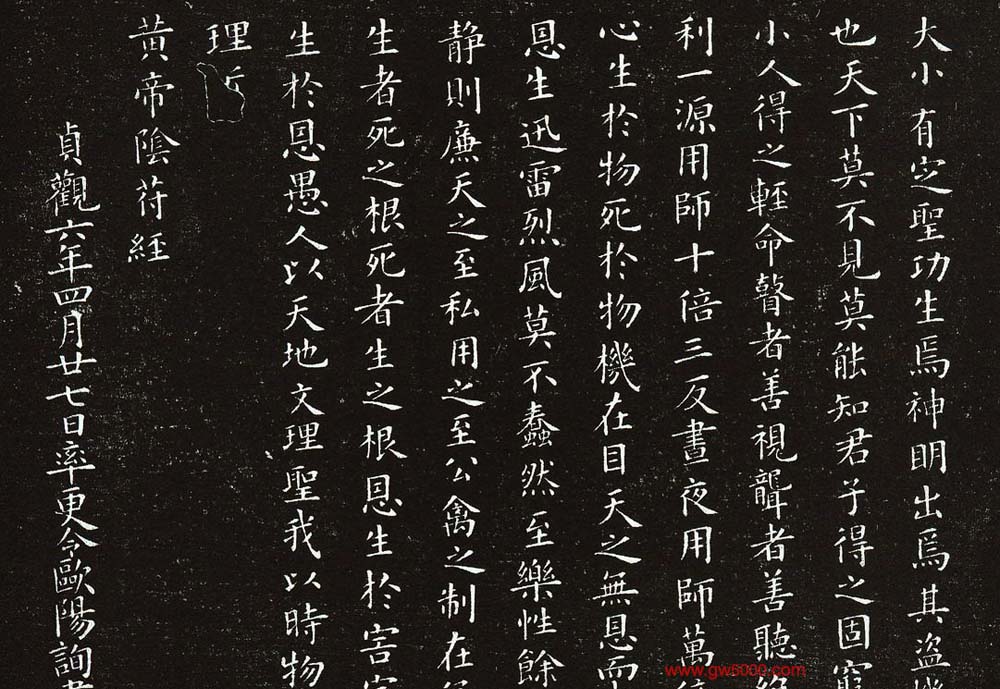 大小有定聖功生焉神明出焉其盜
也天下莫不見莫能知君子得之固窮
小人得之輕命瞽者善視聾者善聽
利一源用師十倍三反晝夜用師萬
心生於物死於物機在目天之無恩而
恩生迅雷烈風莫不蠢然至樂性餘
静則廉天之至私用之至公禽之制在
生者死之根死者生之根恩生於害害
生於恩愚人以天地文理聖我以時物
理
黄帝陰苻經
貞觀六年四月廿七日率更令歐陽詢書
www.gw5000.com